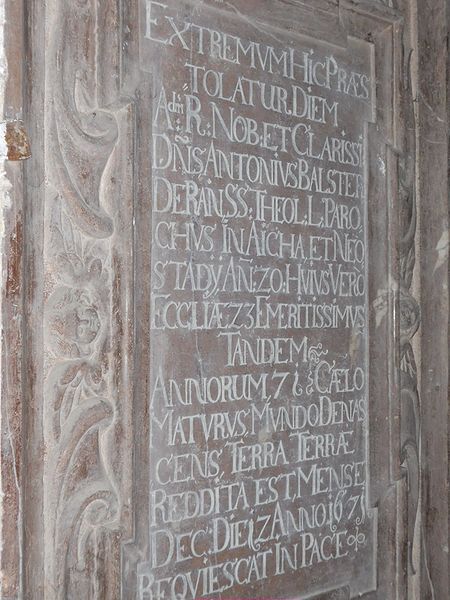 EXTREMVM HIC PRÆS
TOLATUR DIEM
Adm R: NOB: ET CLARISSI
DÑS ANTONIVS BALSTER
DE RAIN, SS: THEOL: L: PARO
CHVS IN AICHA, ET NEO
STADY AÑ: 20: HVIVS VERO
ECCLIÆ 23 EMERITISSIMVS
TANDEM
ANNORUM, 71 CÆLO
MATVRVS, MVNDO DENAS
CENS, TERRA TERRÆ
REDDITA EST, MENSE
DEC: DIE 12 ANNO 1671
REQVIESCAT IN PACE